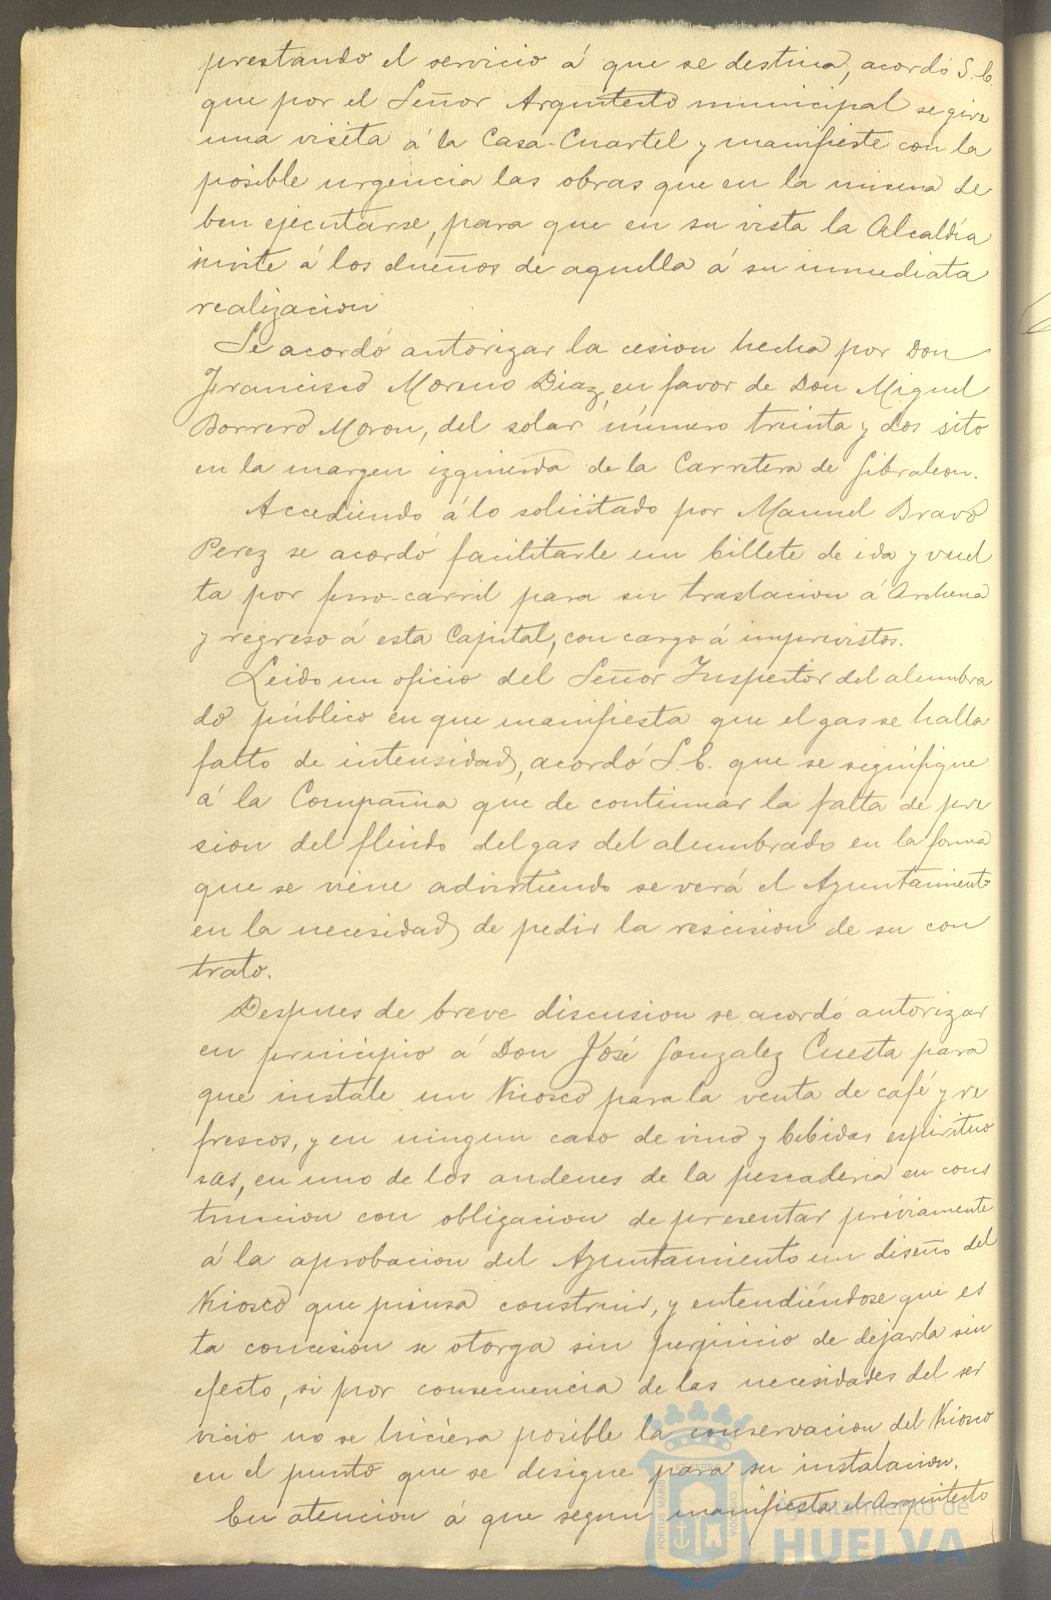 prestando el servicio á que se destina, acordó S. E.
que por el Señor Arquitecto municipal se gire
una visita á la Casa-Cuartel y manifieste con la
posible urgencia las obras que en la misma de
ben ejecutarse, para que en su vista la Alcaldía
invite á los dueños de aquella á su inmediata
realizacion
Se acordó autorizar la cesion hecha por Don
Francisco Moreno Diaz, en favor de Don Miguel
Borrero Moron, del solar número treinta y dos sito
en la margen izquierda de la Carretera de Gibraleon.
Accediendo á lo solicitado por Manuel Bravo
Perez se acordó facilitarle un billete de ida y vuel
ta por ferro-carril para su traslacion á Archena
y regreso á esta Capital, con cargo á imprevistos.
Leido un oficio del Señor Inspector del alumbra
do público en que manifiesta que el gas se halla
falto de intensidad, acordó S. E. que se signifique
á la Compañia que de continuar la falta de pre
sion del fluido del gas del alumbrado en la forma
que se viene advirtiendo se verá el Ayuntamiento
en la necesidad de pedir la rescision de su con
trato.
Despues de breve discusion se acordó autorizar
en principio á Don José Gonzalez Cuesta para
que instale un Kiosco para la venta de café y re
frescos, y en ningun caso de vino y bebidas espirituo
sas, en uno de los andenes de la pescaderia en cons
truccion con obligacion de presentar préviamente
á la aprobacion del Ayuntamiento un diseño del
Kiosco que piensa construir, y entendiéndose que es
ta concesion se otorga sin perjuicio de dejarla sin
efecto, si por consecuencia de las necesidades del ser
vicio no se hiciera posible la conservacion del Kiosco
en el punto que se designe para su instalacion.
En atencion á que segun manifiesta el Arquitecto
Ayuntamiento de
HUELVA